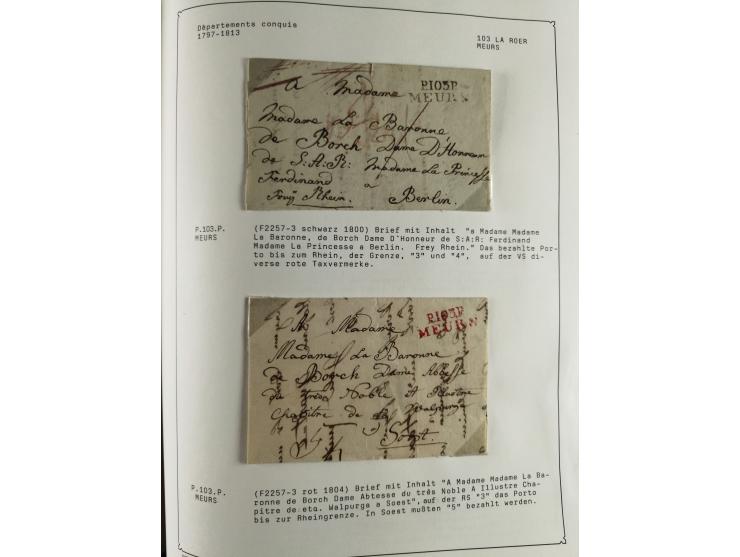 Départements conquis
1797-1813
103 LA ROER
MEURS
a Madame
P.103.P.
MEURS
Madame La Baronne
de Borch Dame D'Honneur
de S:A:R: Madame La Princesse
Ferdinand a
Berlin.
P.103.P.
MEURS
(F2257-3 schwarz 1800) Brief mit Inhalt "a Madame Madame
La Baronne, de Borch Dame D'Honneur de S:A:R: Ferdinand
Madame La Princesse a Berlin. Frey Rhein." Das bezahlte Por-
to bis zum Rhein, der Grenze, "3" und "4", auf der VS di-
verse rote Taxvermerke.
P.103.P.
MEURS
A Madame
Madame La Baronne
de Borch Dame Abbesse
du très Noble A Illustre
Chapitre de
Soest.
P.103.P.
MEURS
(F2257-3 rot 1804) Brief mit Inhalt "A Madame Madame La Ba-
ronne de Borch Dame Abtesse du três Noble A Illustre Cha-
pitre de eta. Walpurga a Soest", auf der RS "3" das Porto
bis zur Rheingrenze. In Soest mußten "5" bezahlt werden.